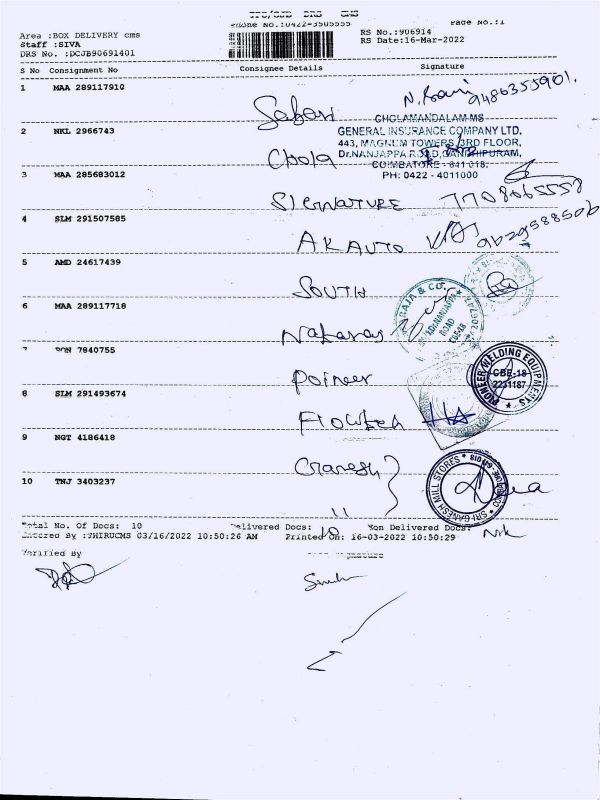 Phone No.:0422-3505555 Page No.:1
Area :BOX DELIVERY cms RS No.:906914
Staff :SIVA RS Date:16-Mar-2022
DRS No. :DCJB90691401
S No Consignment No Consignee Details Signature
1 MAA 289117910 Sabari 9486355901.
CHOLAMANDALAM MS
2 NKL 2966743 Chola GENERAL INSURANCE COMPANY LTD.
443, MAGNUM TOWERS 3RD FLOOR,
Dr.NANJAPPA ROAD, GANDHIPURAM,
COIMBATORE - 641 018.
3 MAA 285683012 PH: 0422 - 4011000
SIGNATURE 7708065558
4 SLM 291507585 AK AUTO 9629588506
5 AMD 24617439 SOUTH
RAJA & CO.
ROAD
CBE-18
6 MAA 289117718
7 7840755 Poineer
PIONEER WELDING EQUIPMENTS
CBE-18
2231187
8 SLM 291493674 Flowtech
9 NGT 4186418 Ganesh
SRI GANESH MILL STORES
10 TNJ 3403237 "
Total No. Of Docs: 10 Delivered Docs: 10 Non Delivered Docs: Nil
Entered By :THIRUCMS 03/16/2022 10:50:26 AM Printed On: 16-03-2022 10:50:29
Verified By Signature